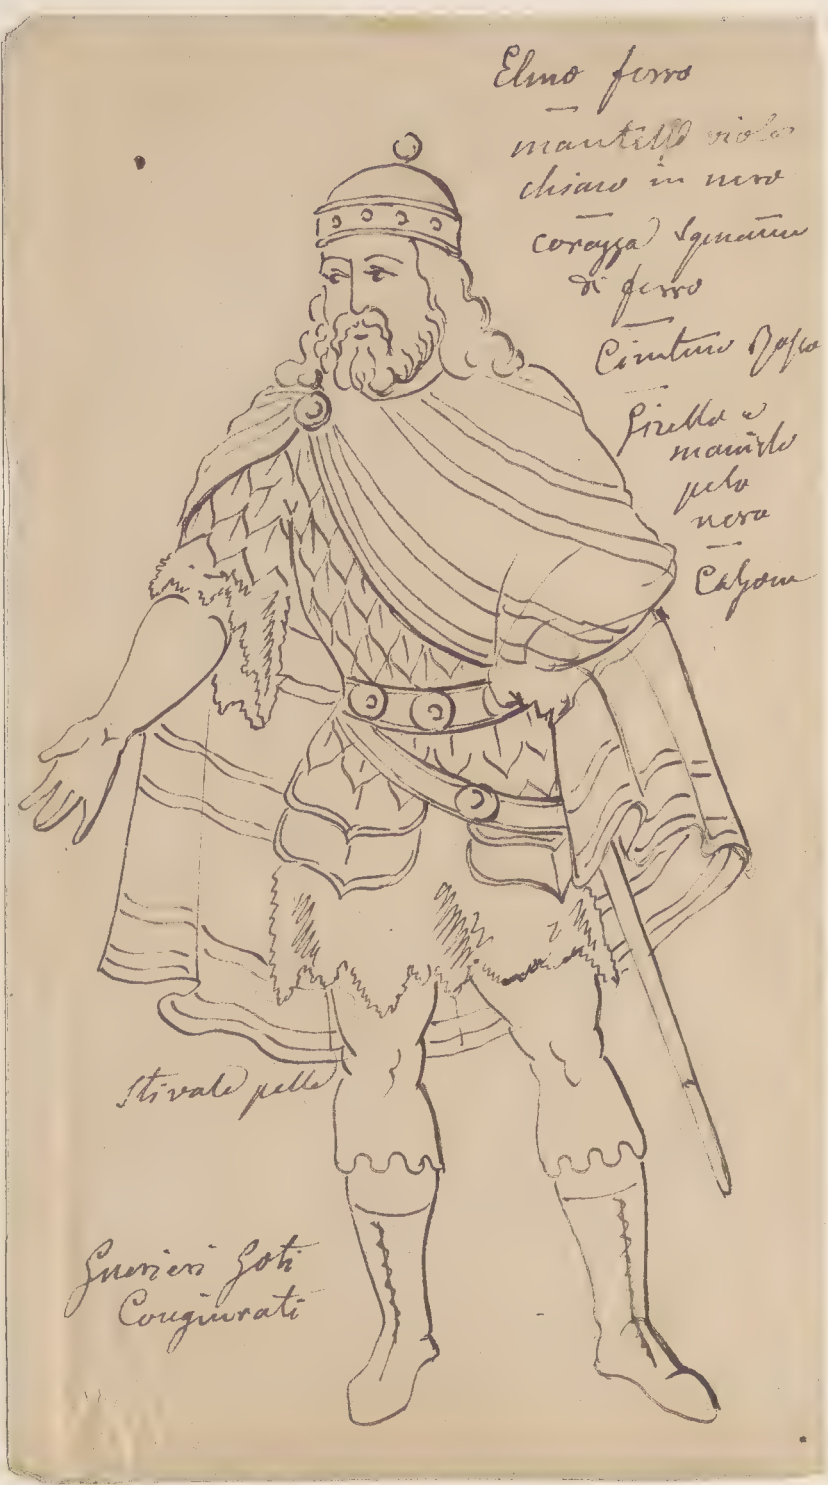 Elmo ferro
mantello viola
chiaro in nero
corazza squame
di ferro
Cinturo
Girello a
pelo
nero
Calzon
Stivale pelle
Guerieri Goti
Congiurati